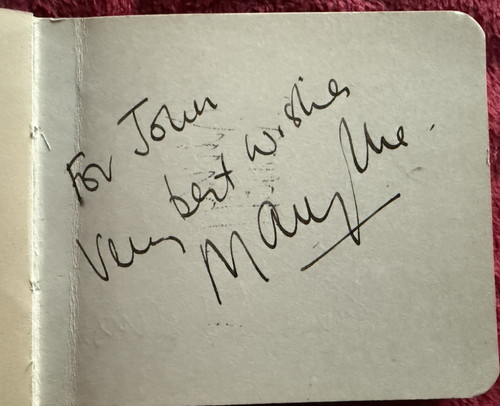 For John
Very best wishes
Mary